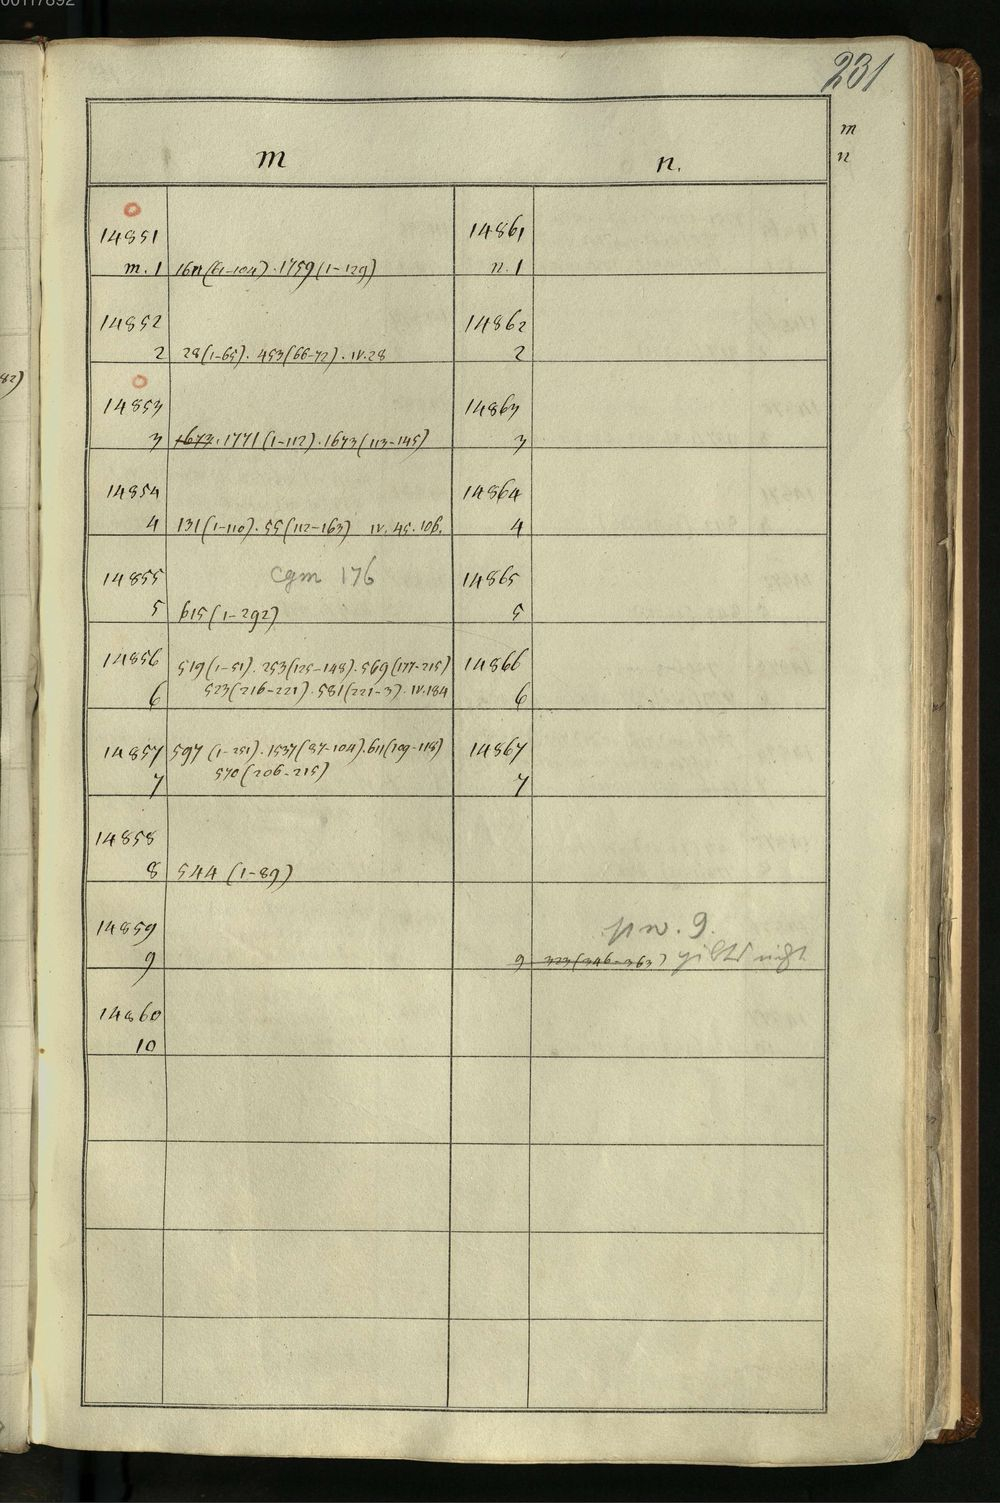 231
m
n
m
n.
14851
m. 1 (61-104) . 1759 (1-129)
14852
2 28 (1-65) . 453 (66-72) . IV. 28
14853
3 1673 . 1771 (1-112) . 1673 (113-145)
14854
4 131 (1-110) . 55 (112-163) IV. 45. 106.
14855 cgm 176
5 615 (1-292)
14856 519 (1-51) . 253 (125-148) . 569 (177-215)
6 523 (216-221) . 581 (221-3) . IV. 184
14857 597 (1-251) . 1537 (87-104) . 611 (109-118)
7 570 (206-215)
14858
8 544 (1-89)
14859
9
14860
10
14861
n. 1
14862
2
14863
3
14864
4
14865
5
14866
6
14867
7
9.
9 323 (346-363) gibts nicht
82)